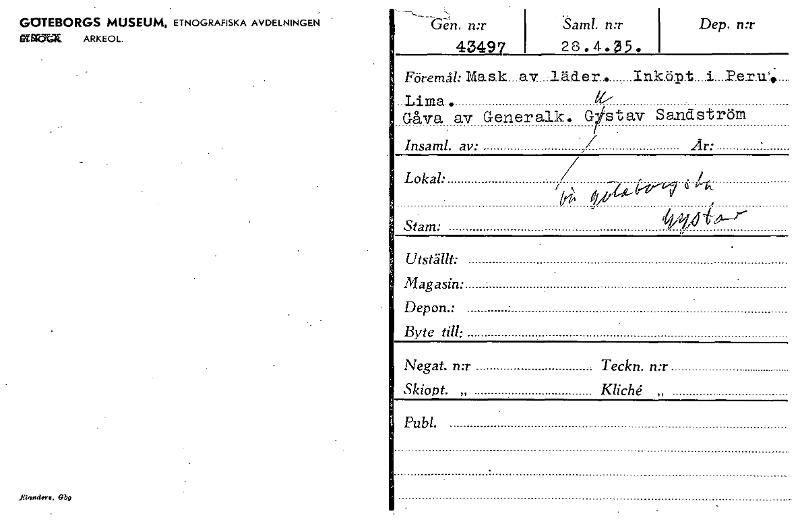 GÖTEBORGS MUSEUM, ETNOGRAFISKA AVDELNINGEN
ARKEOL.
Gen. n:r Saml. n:r Dep. n:r
43497 28.4.35.
Föremål: Mask av läder. Inköpt i Peru.
Lima.
u
Gåva av Generalk. Gystav Sandström
Insaml. av: År:
Lokal:
på göteborgska
Gystav
Stam:
Utställt:
Magasin:
Depon.:
Byte till:
Negat. n:r Teckn. n:r
Skiopt. „ Kliché „
Publ.
Elanders, Gbg